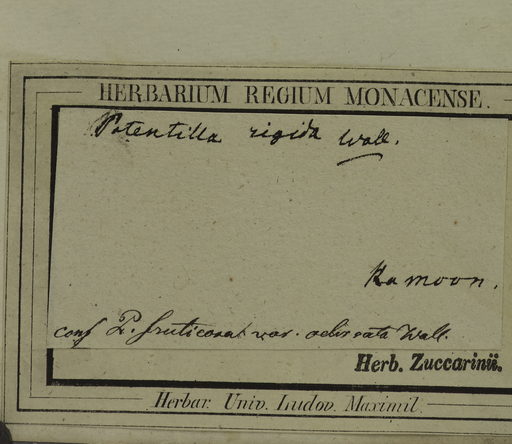 HERBARIUM REGIUM MONACENSE.
Potentilla rigida Wall.
Kamoon.
conf P. fruticosa var. Wall.
Herb. Zuccarinii.
Herbar. Univ. Ludov. Maximil.